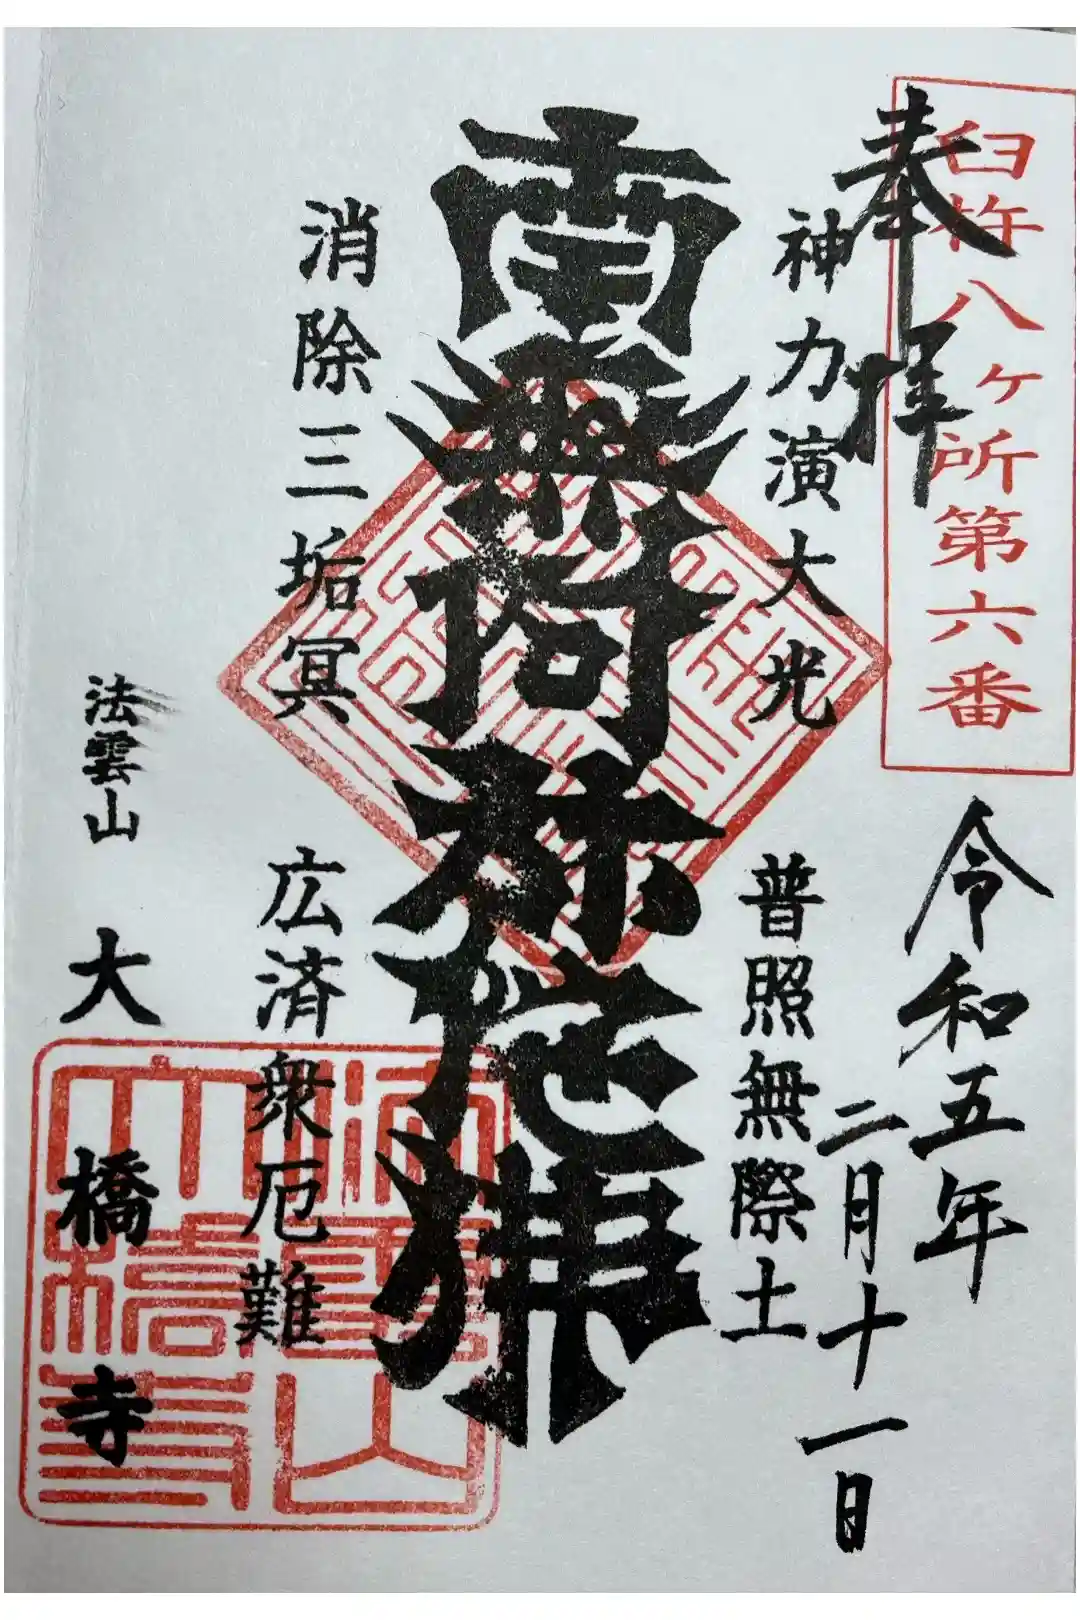 奉拝
臼杵八ヶ所第六番
令和五年
二月十一日
神力演大光
普照無際土
南無阿弥陀佛
消除三垢冥
広済衆厄難
法雲山
大橋寺
法雲山
大橋寺